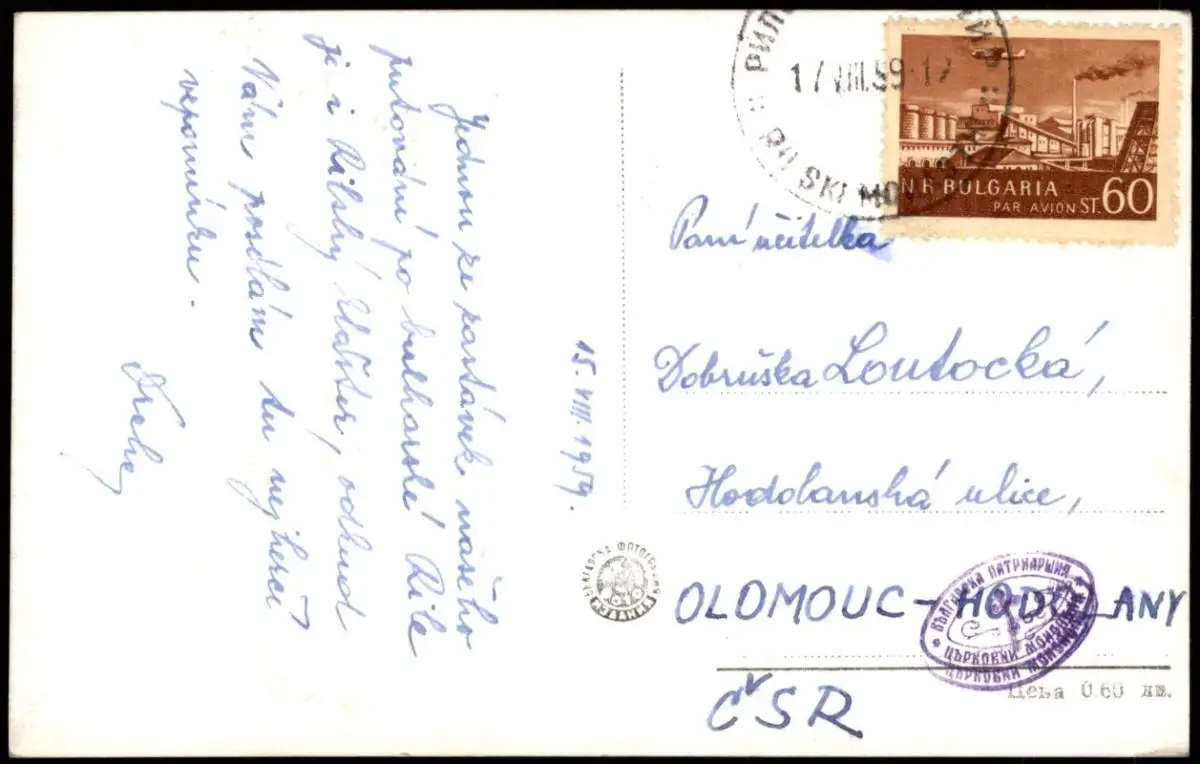 Jednou ze zastávek našeho
putování po bulharské Rile
je i Rilský klášter, odkud
Vám posílám tu nejhezčí
vzpomínku.
15. VIII. 1959.
РИЛ
17 VIII.59-17
SKI MO
N R BULGARIA
PAR AVION ST. 60
Paní učitelka
Dobruška Loutocká,
Hodolanská ulice,
OLOMOUC-HODOLANY
ČSR
БЪЛГАРСКА ПАТРИАРШИЯ
ЦЪРКОВНИ
ЦЪРКОВНИ
Цена 0.60 лв.